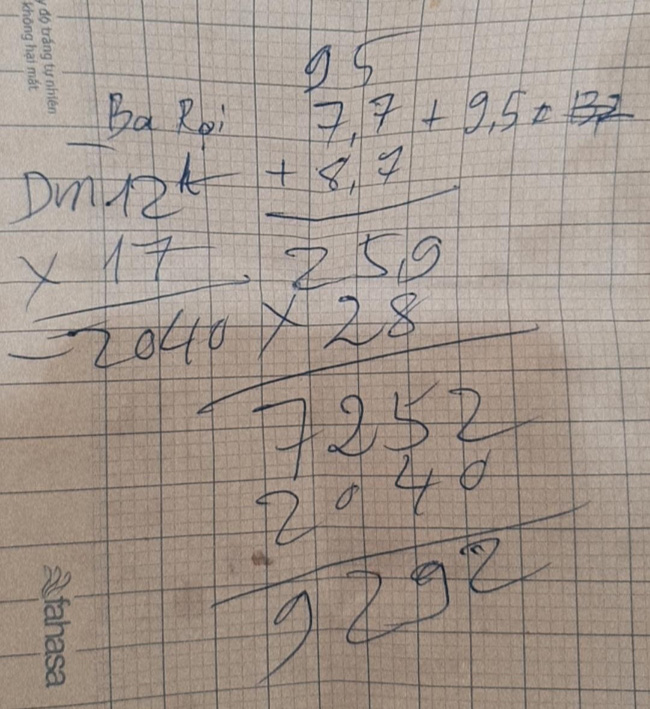 độ trắng tự nhiên
không hại mắt
95
Ba Rọi 7,7 + 9,5 =
+ 8,7
x 17
259
2040
x 28
7252
2040
9292
fahasa